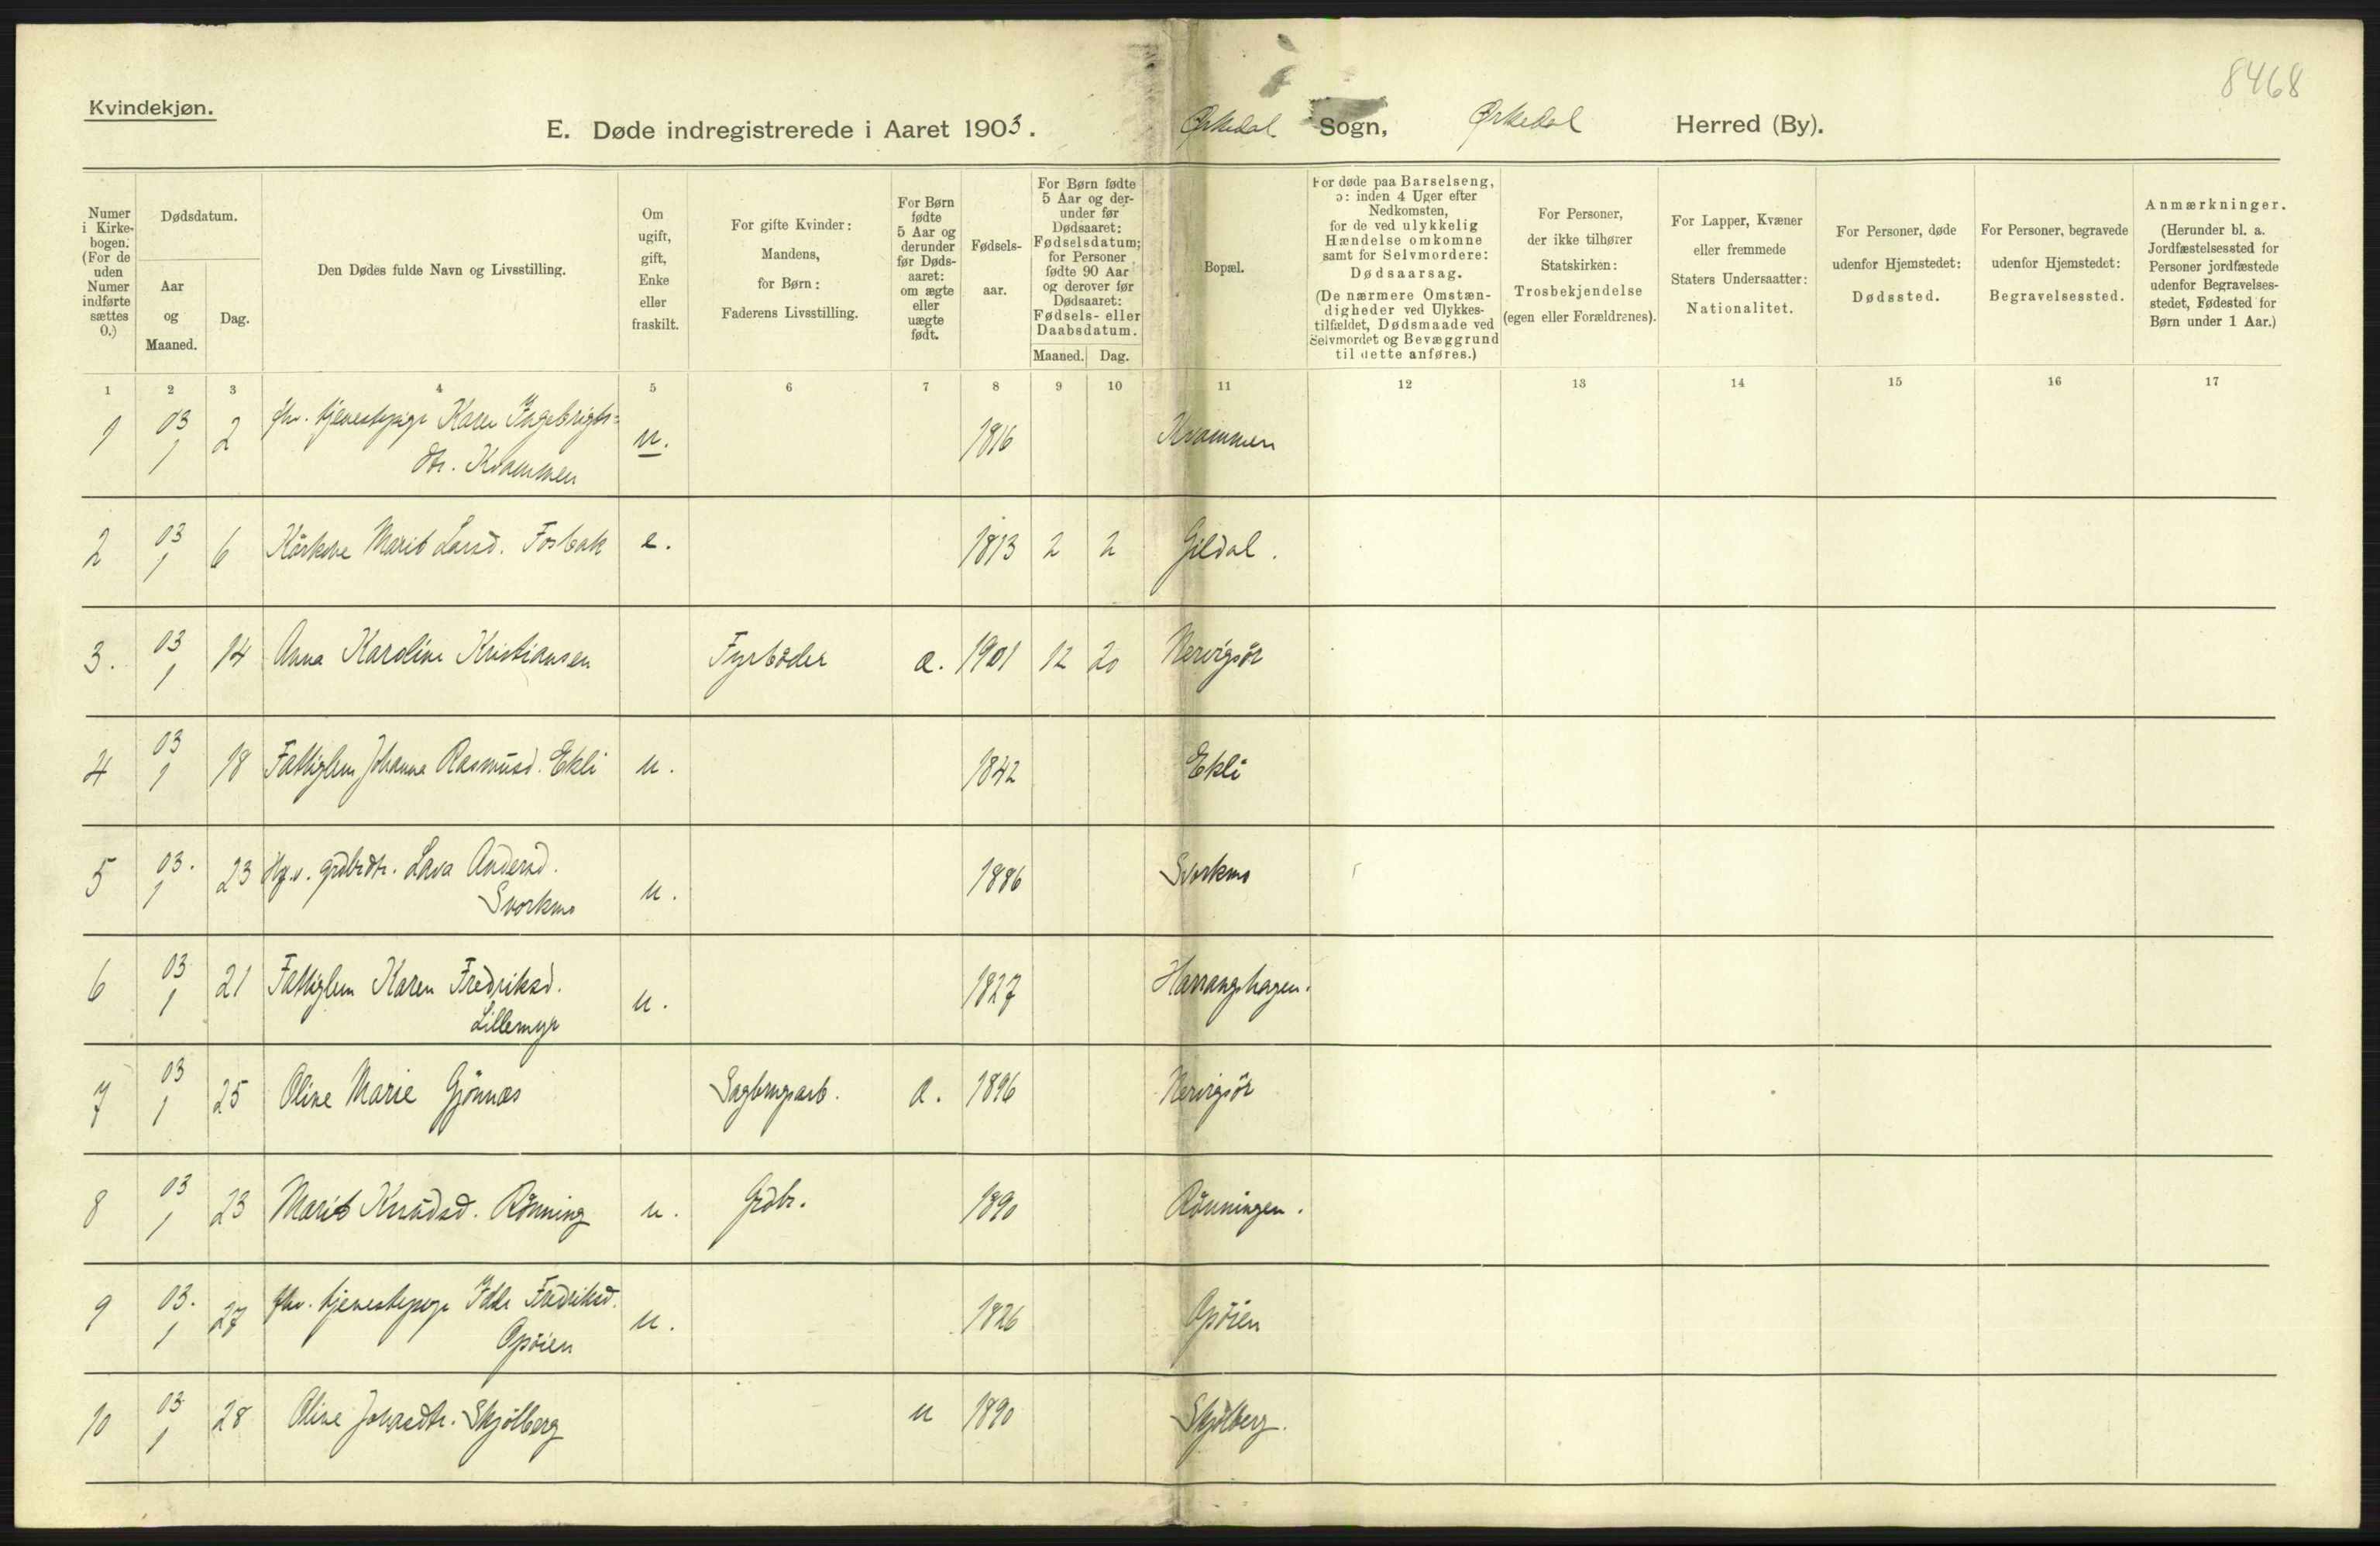 8468
Kvindekjøn.
E. Døde indregistrerede i Aaret 1903. Ørkedal Sogn, Ørkedal Herred (By).
Numer
i Kirke-
bogen.
(For de
uden
Numer
indførte
sættes
0.)
Dødsdatum.
Aar
og
Maaned.
Dag.
Den Dødes fulde Navn og Livsstilling.
Om
ugift,
gift,
Enke
eller
fraskilt.
For gifte Kvinder:
Mandens,
for Børn:
Faderens Livsstilling.
For Børn
fødte
5 Aar og
derunder
før Døds-
aaret:
om ægte
eller
uægte
født.
Fødsels-
aar.
For Børn fødte
5 Aar og der-
under før
Dødsaaret:
Fødselsdatum;
for Personer
fødte 90 Aar
og derover før
Dødsaaret:
Fødsels- eller
Daabsdatum.
Maaned. Dag.
Bopæl.
For døde paa Barselseng,
ɔ: inden 4 Uger efter
Nedkomsten,
for de ved ulykkelig
Hændelse omkomne
samt for Selvmordere:
Dødsaarsag.
(De nærmere Omstæn-
digheder ved Ulykkes-
tilfældet, Dødsmaade ved
Selvmordet og Bevæggrund
til dette anføres.)
For Personer,
der ikke tilhører
Statskirken:
Trosbekjendelse
(egen eller Forældrenes).
For Lapper, Kvæner
eller fremmede
Staters Undersaatter:
Nationalitet.
For Personer, døde
udenfor Hjemstedet:
Dødssted.
For Personer, begravede
udenfor Hjemstedet:
Begravelsessted.
Anmærkninger.
(Herunder bl. a.
Jordfæstelsessted for
Personer jordfæstede
udenfor Begravelses-
stedet, Fødested for
Børn under 1 Aar.)
1 2 3 4 5 6 7 8 9 10 11 12 13 14 15 16 17
1 03 1 2 fhv. tjenestepige Karen Ingebrigts= u. 1816 Kvammen
dtr. Kvammen
2 03 1 6 Kårkone Marit Larsd. Fosbak e. 1813 2 2 Gildal.
3. 03 1 14 Anna Karoline Kristiansen Fyrbøder æ. 1901 12 20 Nervigsör
4 03 1 18 Fattiglem Johanna Rasmusd. Ekli u. 1842 Ekli
5 03. 1 23 grdbrdtr. Lava Andersd. u. 1886 Svorkmo
Svorkmo
6 03 1 21 Fattiglem Karen Fredriksd. u. 1827 Harrangshagen.
Lillemyr
7 03 1 25 Oline Marie Gjönnæs Sagbrugsarb. æ. 1896 Nervigsör
8 03 1 23 Marit Knudsd. Rönning u. Grdbr. 1890 Rönningen.
9 03. 1 27 fhv. tjenestepige Fredriksd. u. 1826 Opöien
Opöien
10 03 1 28 Oline Skjölberg u 1890 Skjölberg.